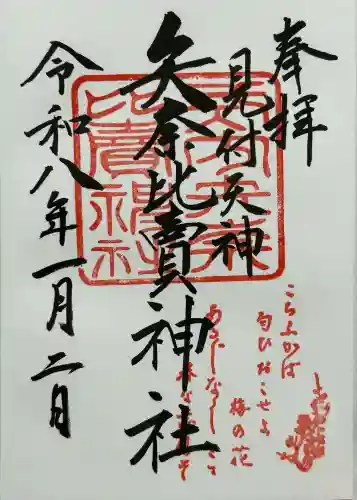 奉拝
見付天神
矢奈比賣神社
令和八年一月二日
こちふかば
匂ひおこせよ
梅の花
あるじなしとて
春な